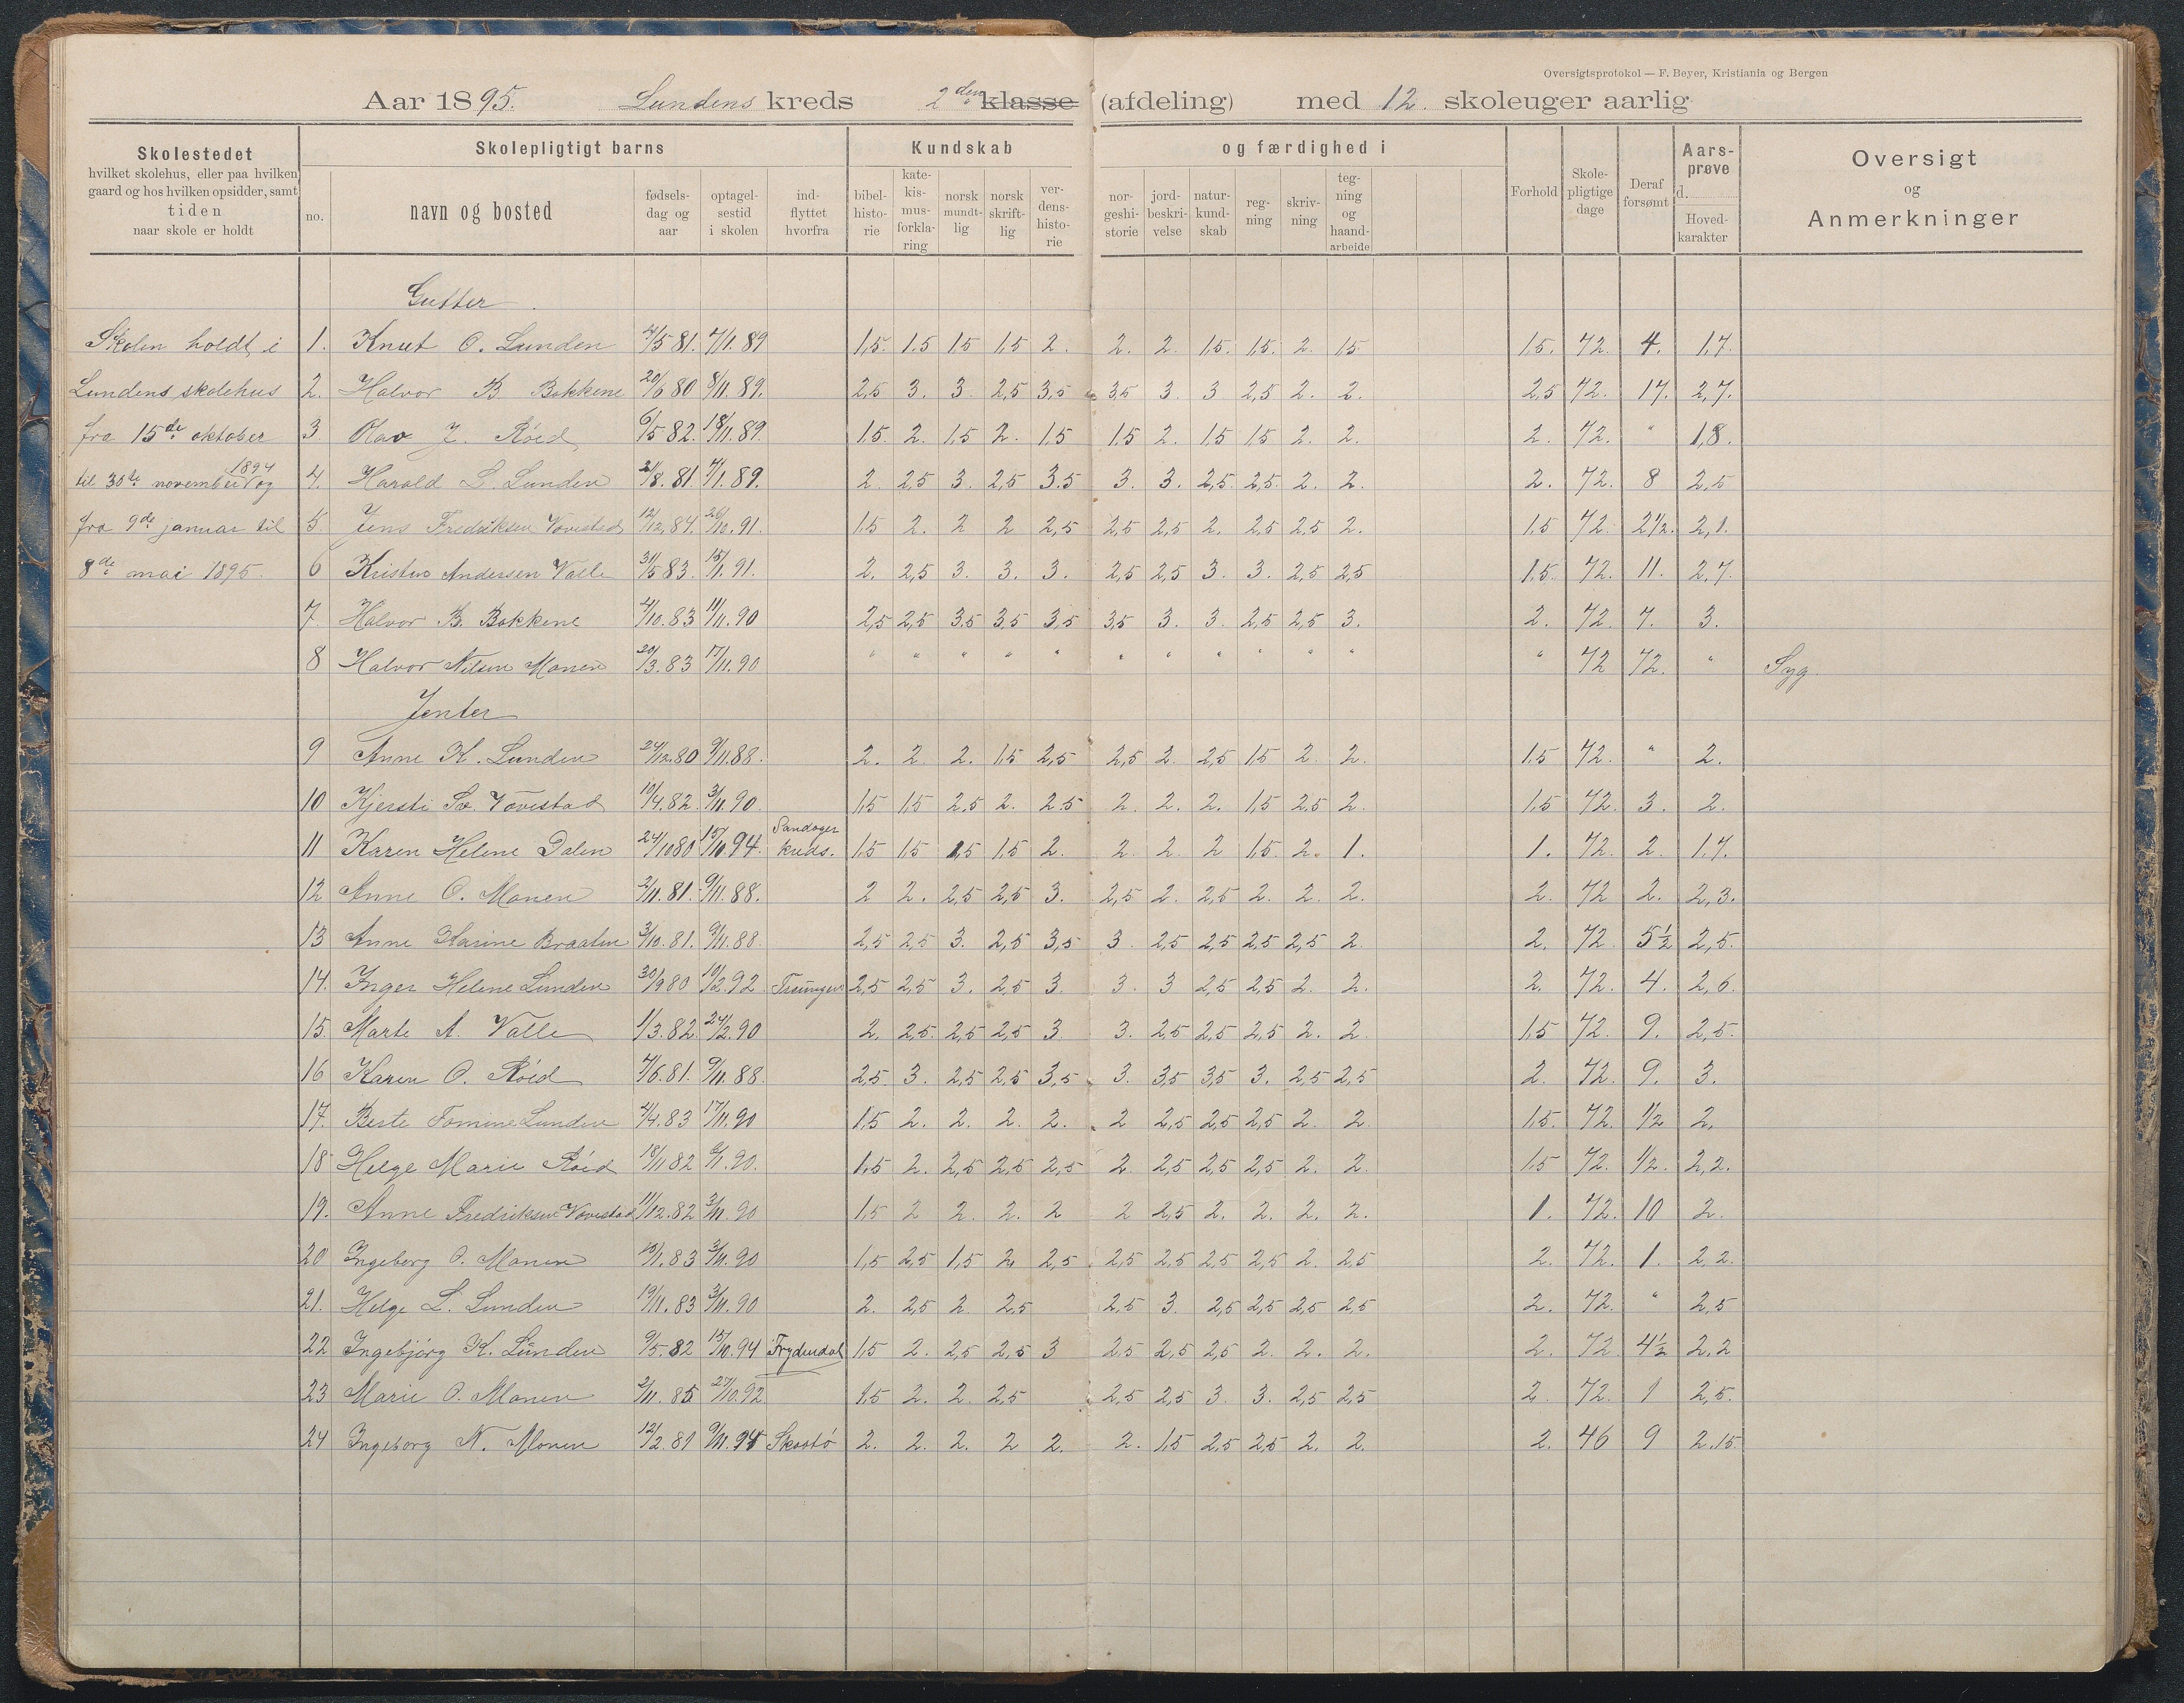 Oversigtsprotokol — F. Beyer, Kristiania og Bergen
Aar 1895. Lundens kreds 2den klasse (afdeling) med 12. skoleuger aarlig
Skolestedet
hvilket skolehus, eller paa hvilken
gaard og hos hvilken opsidder, samt
tiden
naar skole er holdt
Skolepligtigt barns
no. navn og bosted
fødsels-dag og aar
optagel-sestid i skolen
ind-flyttet hvorfra
Kundskab og færdighed i
bibel-histo-rie
kate-kis-mus-forkla-ring
norsk mundt-lig
norsk skrift-lig
ver-dens-histo-rie
nor-geshi-storie
jord-beskri-velse
natur-kund-skab
reg-ning
skriv-ning
teg-ning og haand-arbeide
Forhold
Skole-pligtige dage
Deraf forsømt
Aars-prøve d. Hoved-karakter
Oversigt
og
Anmerkninger
Gutter.
Skolen holdt i 1. Knut O. Lunden 4/5 81. 7/1. 89 1,5. 1.5 1,5 1,5 2. 2. 2. 1,5. 1,5. 2. 1,5 1,5. 72. 4. 1,7.
Lundens skolehus 2. Halvor B. Bakkene 20/6 80 8/11. 89. 2,5 3. 3. 2,5 3,5 3,5 3. 3 2,5 2. 2. 2,5 72. 17. 2,7.
fra 15de oktober 3. Olav J. Röed 6/5 82. 18/11. 89. 1,5. 2. 1,5 2. 1,5 1,5 2. 1,5 1,5 2. 2. 2. 72. " 1,8.
til 30te november 1894 og 4. Harald L. Lunden 21/8. 81. 7/1. 89. 2. 2,5 3. 2,5 3.5 3. 3. 2,5. 2,5. 2. 2. 2. 72. 8 2,5
fra 9de januar til 5. Jens Fredriksen Vovestad 12/12, 84. 26/10. 91. 1,5 2. 2 2 2,5 2,5 2,5 2. 2,5 2,5 2. 1,5 72. 2 1/2. 2,1.
8de mai 1895. 6 Kristen Andersen Valle 31/5 83. 15/1. 91. 2. 2,5 3. 3. 3. 2,5 2,5 3. 3. 2,5 2,5 1,5. 72. 11. 2,7.
7. Halvor B. Bakkene 4/10. 83 11/11. 90 2,5 2,5 3.5 3,5 3,5 3,5 3. 3. 2,5 2,5 3. 2. 72. 7. 3.
8 Halvor Nilsen Monen 20/3. 83 17/11. 90 " " " " " " " " " " " " 72 72. " Syg
Jenter
9 Anne K. Lunden 24/12. 80 9/11. 88. 2. 2. 2. 1,5 2,5 2,5 2. 2,5 1,5 2. 2. 1,5 72. " 2.
10 Kjersti Sv. Vovestad 10/4. 82. 3/11. 90. 1,5 1,5 2,5 2. 2.5 2. 2. 2. 1,5 2,5 2. 1,5. 72. 3. 2.
11 Karen Helene Dalen 24/10 80 15/10. 94. Sandager kreds. 1,5 1,5 1,5 1,5 2. 2. 2. 2 1,5. 2. 1. 1. 72. 2. 1.7.
12 Anne O. Monen 2/11. 81. 9/11. 88. 2 2. 2,5 2,5 3. 2,5 2. 2,5 2. 2. 2. 2. 72 2. 2,3.
13 Anne Karine Braaten 3/10. 81. 9/11. 88. 2,5 2,5 3. 2,5 3,5 3. 2,5 2,5 2,5 2,5 2. 2. 72. 5 1/2 2,5.
14. Inger Helene Lunden 30/9 80 10/2. 92 Treungen 2,5 2,5 3. 2,5 3. 3. 3 2,5 2,5 2. 2. 2. 72. 4. 2,6.
15. Marte A. Valle 1/3. 82. 24/2. 90 2. 2,5. 2,5 2,5 3. 3. 2,5 2,5 2,5 2. 2. 1,5 72. 9. 2,5.
16 Karen O. Röed 4/6. 81. 9/11. 88. 2,5. 3. 2,5 2,5 3,5 3. 3,5 3,5 3. 2,5 2,5 2. 72. 9. 3.
17. Berte Tomine Lunden 4/4. 83 17/11. 90 1,5 2. 2. 2. 2. 2 2,5 2,5 2,5 2. 2. 1,5. 72. 1/2 2.
18 Helge Marie Röed 18/11 82 9/1. 90. 1,5 2. 2,5 2,5 2,5 2. 2,5 2,5 2,5 2. 2. 1,5 72. 1/2. 2,2.
19. Anne Fredriksen Vovestad 11/12. 82 3/11. 90 1,5 2 2. 2. 2 2 2,5 2. 2. 2. 2. 1. 72. 10 2.
20 Ingeborg O. Monen 13/1. 83 3/11. 90 1,5 2,5 1,5 2 2,5 2,5 2,5 2,5 2,5 2. 2,5 2. 72. 1. 2,2.
21. Helge L. Lunden 19/11. 83 3/11. 90 2. 2,5 2. 2,5 2,5 3. 2,5 2,5 2,5 2,5 2. 72. " 2,5
22 Ingebjörg K. Lunden 9/5. 82 15/10. 94 Frydendal 1,5 2. 2,5 2,5 3 2,5 2,5 2,5 2. 2. 2. 2. 72 4 1/2 2,2
23 Marie O. Monen 2/11. 85 27/10. 92 1,5 2. 2. 2,5 2,5 2,5 3. 3. 2,5 2,5 2. 72. 1 2,5.
24 Ingeborg N. Monen 12/2. 81 9/11. 94 Skaatö 2. 2. 2. 2 2. 2. 1,5 2,5 2,5 2. 2. 2. 46 9 2.15.